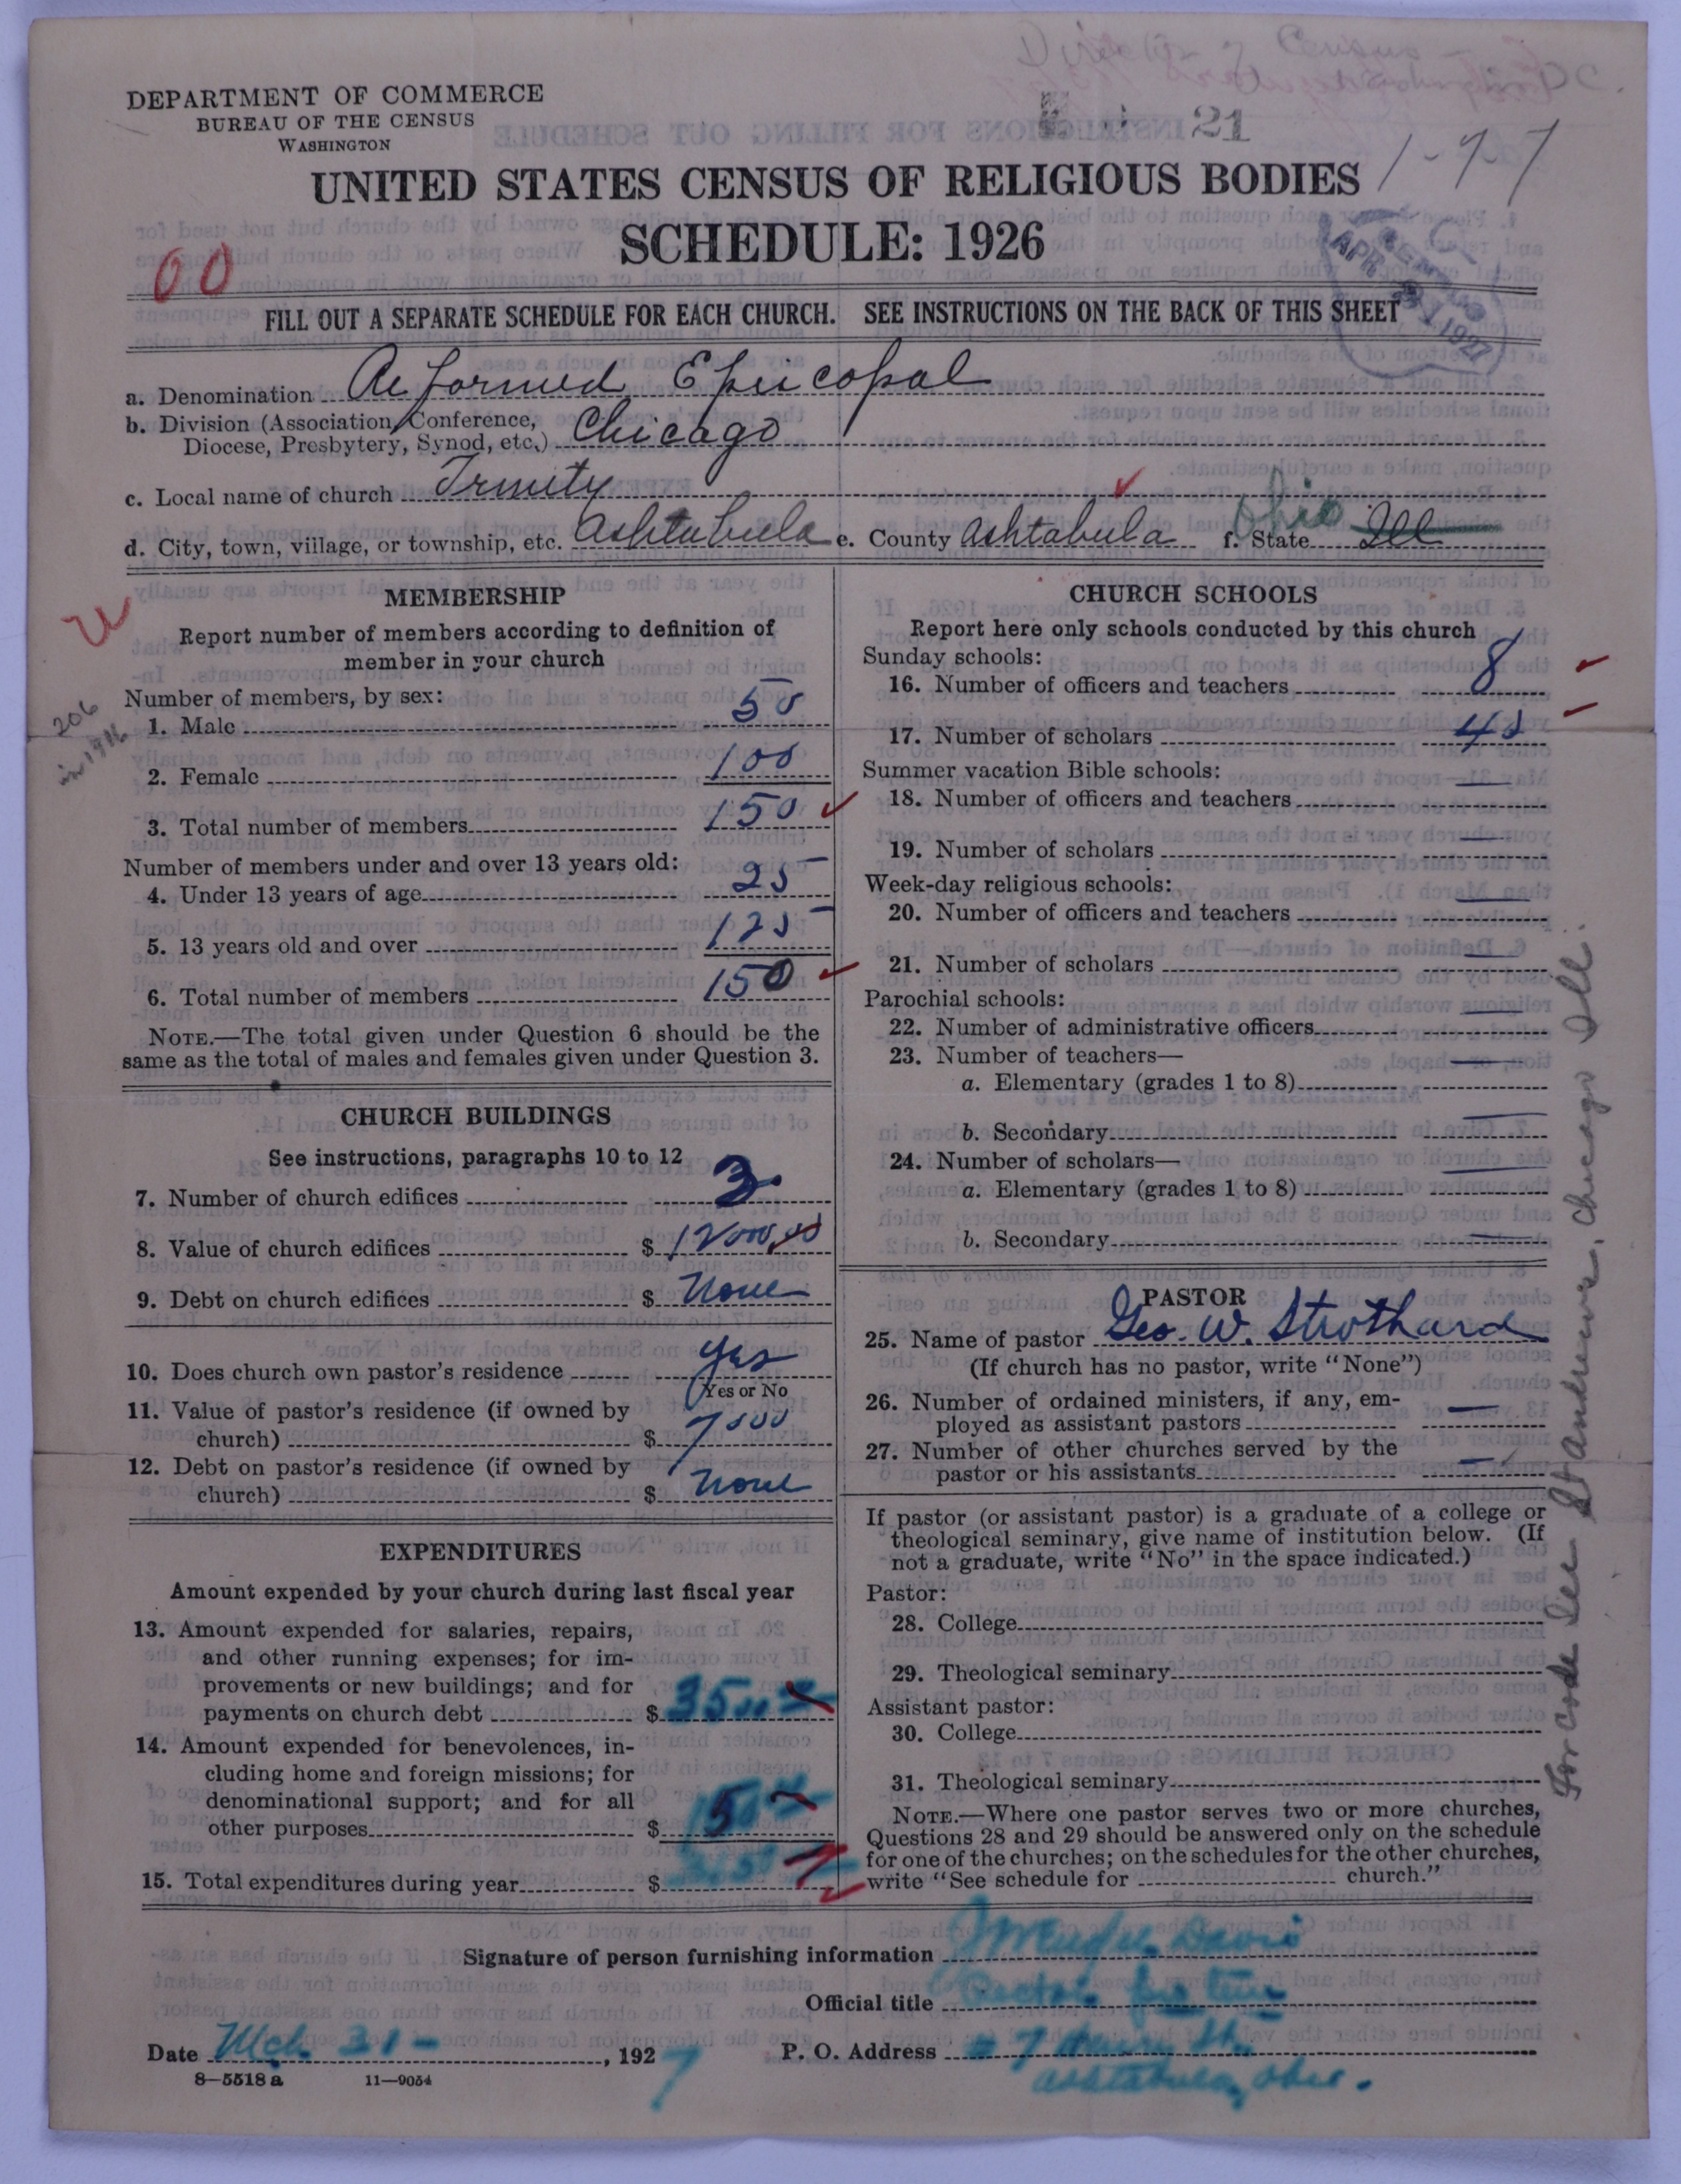 DEPARTMENT OF COMMERCE
BUREAU OF THE CENSUS
WASHINGTON
21
UNITED STATES CENSUS OF RELIGIOUS BODIES
1-97
SCHEDULE: 1926
00
CENSUS
APR 1 1927
FILL OUT A SEPARATE SCHEDULE FOR EACH CHURCH. SEE INSTRUCTIONS ON THE BACK OF THIS SHEET
a. Denomination Reformed Episcopal
b. Division (Association, Conference,
Diocese, Presbytery, Synod, etc.) Chicago
c. Local name of church Trinity
d. City, town, village, or township, etc. Ashtabula e. County Ashtabula f. State Ohio Ill
MEMBERSHIP
Report number of members according to definition of
member in your church
Number of members, by sex:
206
in 1916
1. Male 50
2. Female 100
3. Total number of members 150
Number of members under and over 13 years old:
4. Under 13 years of age 25
5. 13 years old and over 125
6. Total number of members 150
NOTE.—The total given under Question 6 should be the
same as the total of males and females given under Question 3.
CHURCH BUILDINGS
See instructions, paragraphs 10 to 12
7. Number of church edifices
8. Value of church edifices $ 12000,00
9. Debt on church edifices $ None
10. Does church own pastor's residence yes
Yes or No
11. Value of pastor's residence (if owned by
church) $ 7000
12. Debt on pastor's residence (if owned by
church) $ None
EXPENDITURES
Amount expended by your church during last fiscal year
13. Amount expended for salaries, repairs,
and other running expenses; for im-
provements or new buildings; and for
payments on church debt $ 3500
14. Amount expended for benevolences, in-
cluding home and foreign missions; for
denominational support; and for all
other purposes $ 150
15. Total expenditures during year $
CHURCH SCHOOLS
Report here only schools conducted by this church
Sunday schools:
16. Number of officers and teachers 8
17. Number of scholars
Summer vacation Bible schools:
18. Number of officers and teachers —
19. Number of scholars —
Week-day religious schools:
20. Number of officers and teachers —
21. Number of scholars —
Parochial schools:
22. Number of administrative officers —
23. Number of teachers—
a. Elementary (grades 1 to 8) —
b. Secondary —
24. Number of scholars—
a. Elementary (grades 1 to 8) —
b. Secondary —
PASTOR
25. Name of pastor Geo. W. Strothard
(If church has no pastor, write "None")
26. Number of ordained ministers, if any, em-
ployed as assistant pastors —
27. Number of other churches served by the
pastor or his assistants —
If pastor (or assistant pastor) is a graduate of a college or
theological seminary, give name of institution below. (If
not a graduate, write "No" in the space indicated.)
Pastor:
28. College
29. Theological seminary
Assistant pastor:
30. College
31. Theological seminary
NOTE.—Where one pastor serves two or more churches,
Questions 28 and 29 should be answered only on the schedule
for one of the churches; on the schedules for the other churches,
write "See schedule for church."
For code see St Andrews, Chicago Ill.
Signature of person furnishing information Davis
Official title Rector pro tem
Date Mch 31 - , 1927 P. O. Address
Ashtabula, Ohio.
8—5518 a 11—9054